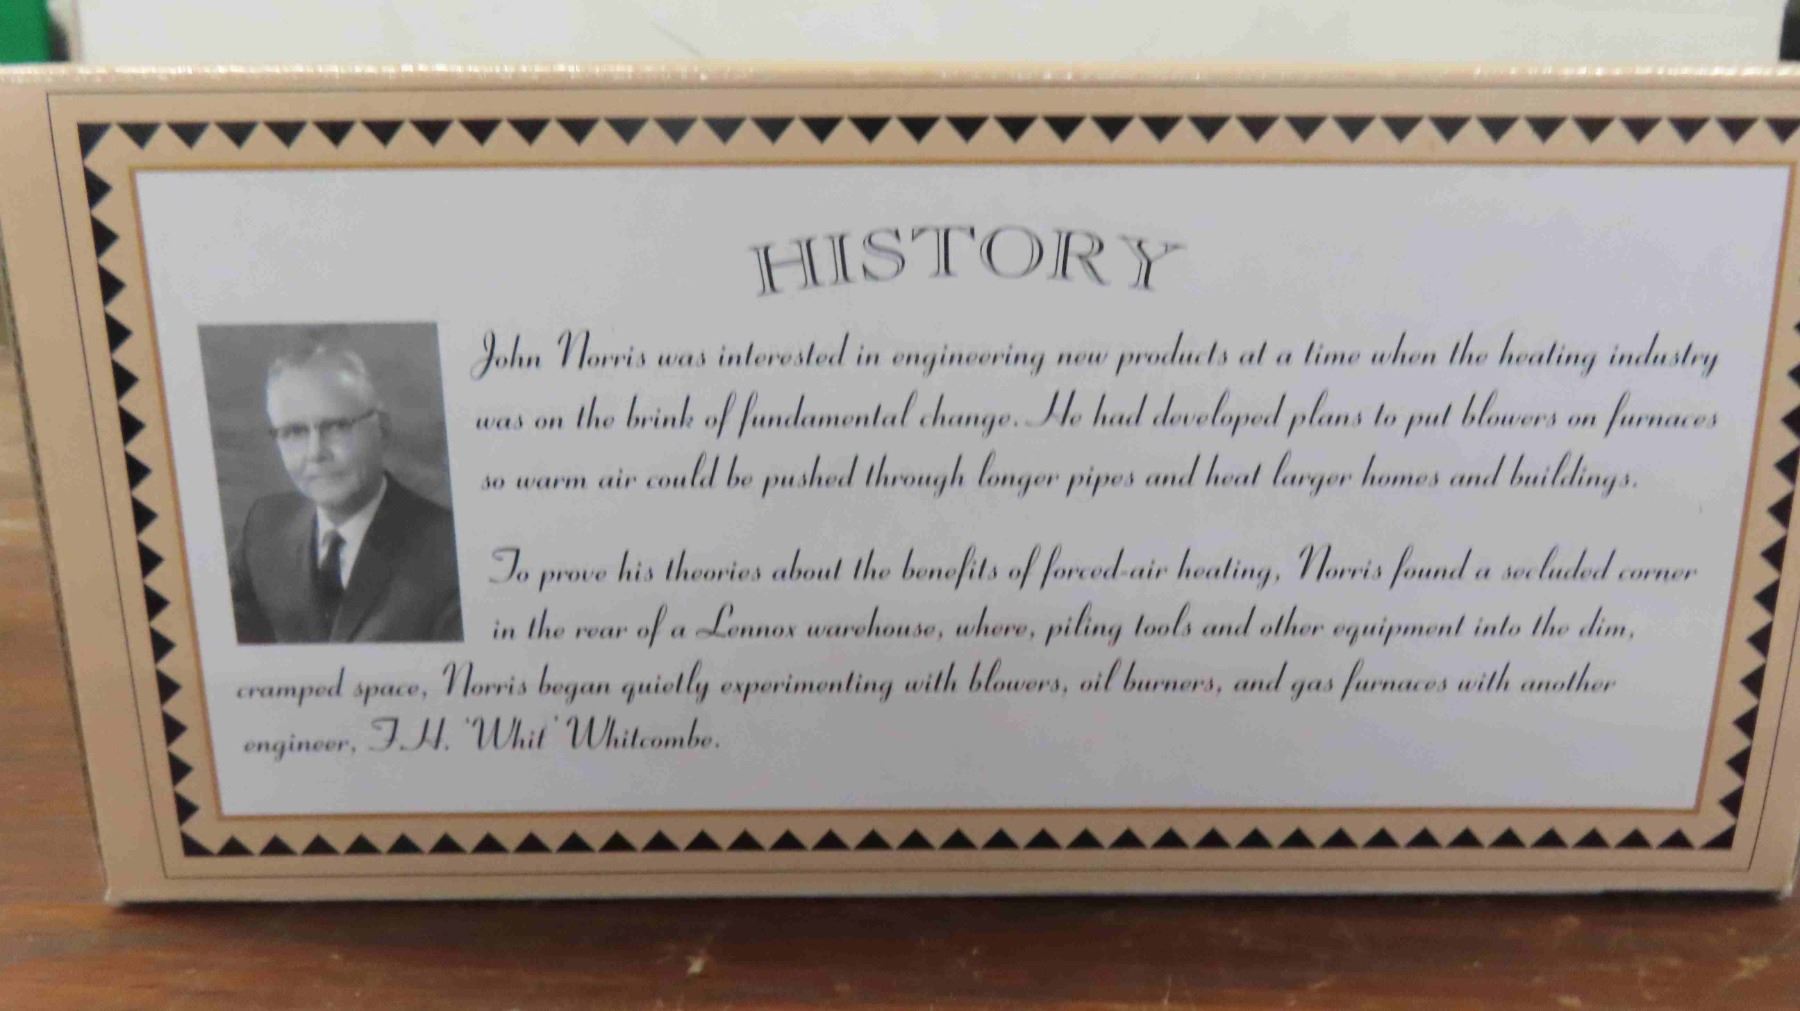 HISTORY
John Norris was interested in engineering new products at a time when the heating industry
was on the brink of fundamental change. He had developed plans to put blowers on furnaces
so warm air could be pushed through longer pipes and heat larger homes and buildings.
To prove his theories about the benefits of forced-air heating, Norris found a secluded corner
in the rear of a Lennox warehouse, where, piling tools and other equipment into the dim,
cramped space, Norris began quietly experimenting with blowers, oil burners, and gas furnaces with another
engineer, F.H. 'Whit' Whitcombe.